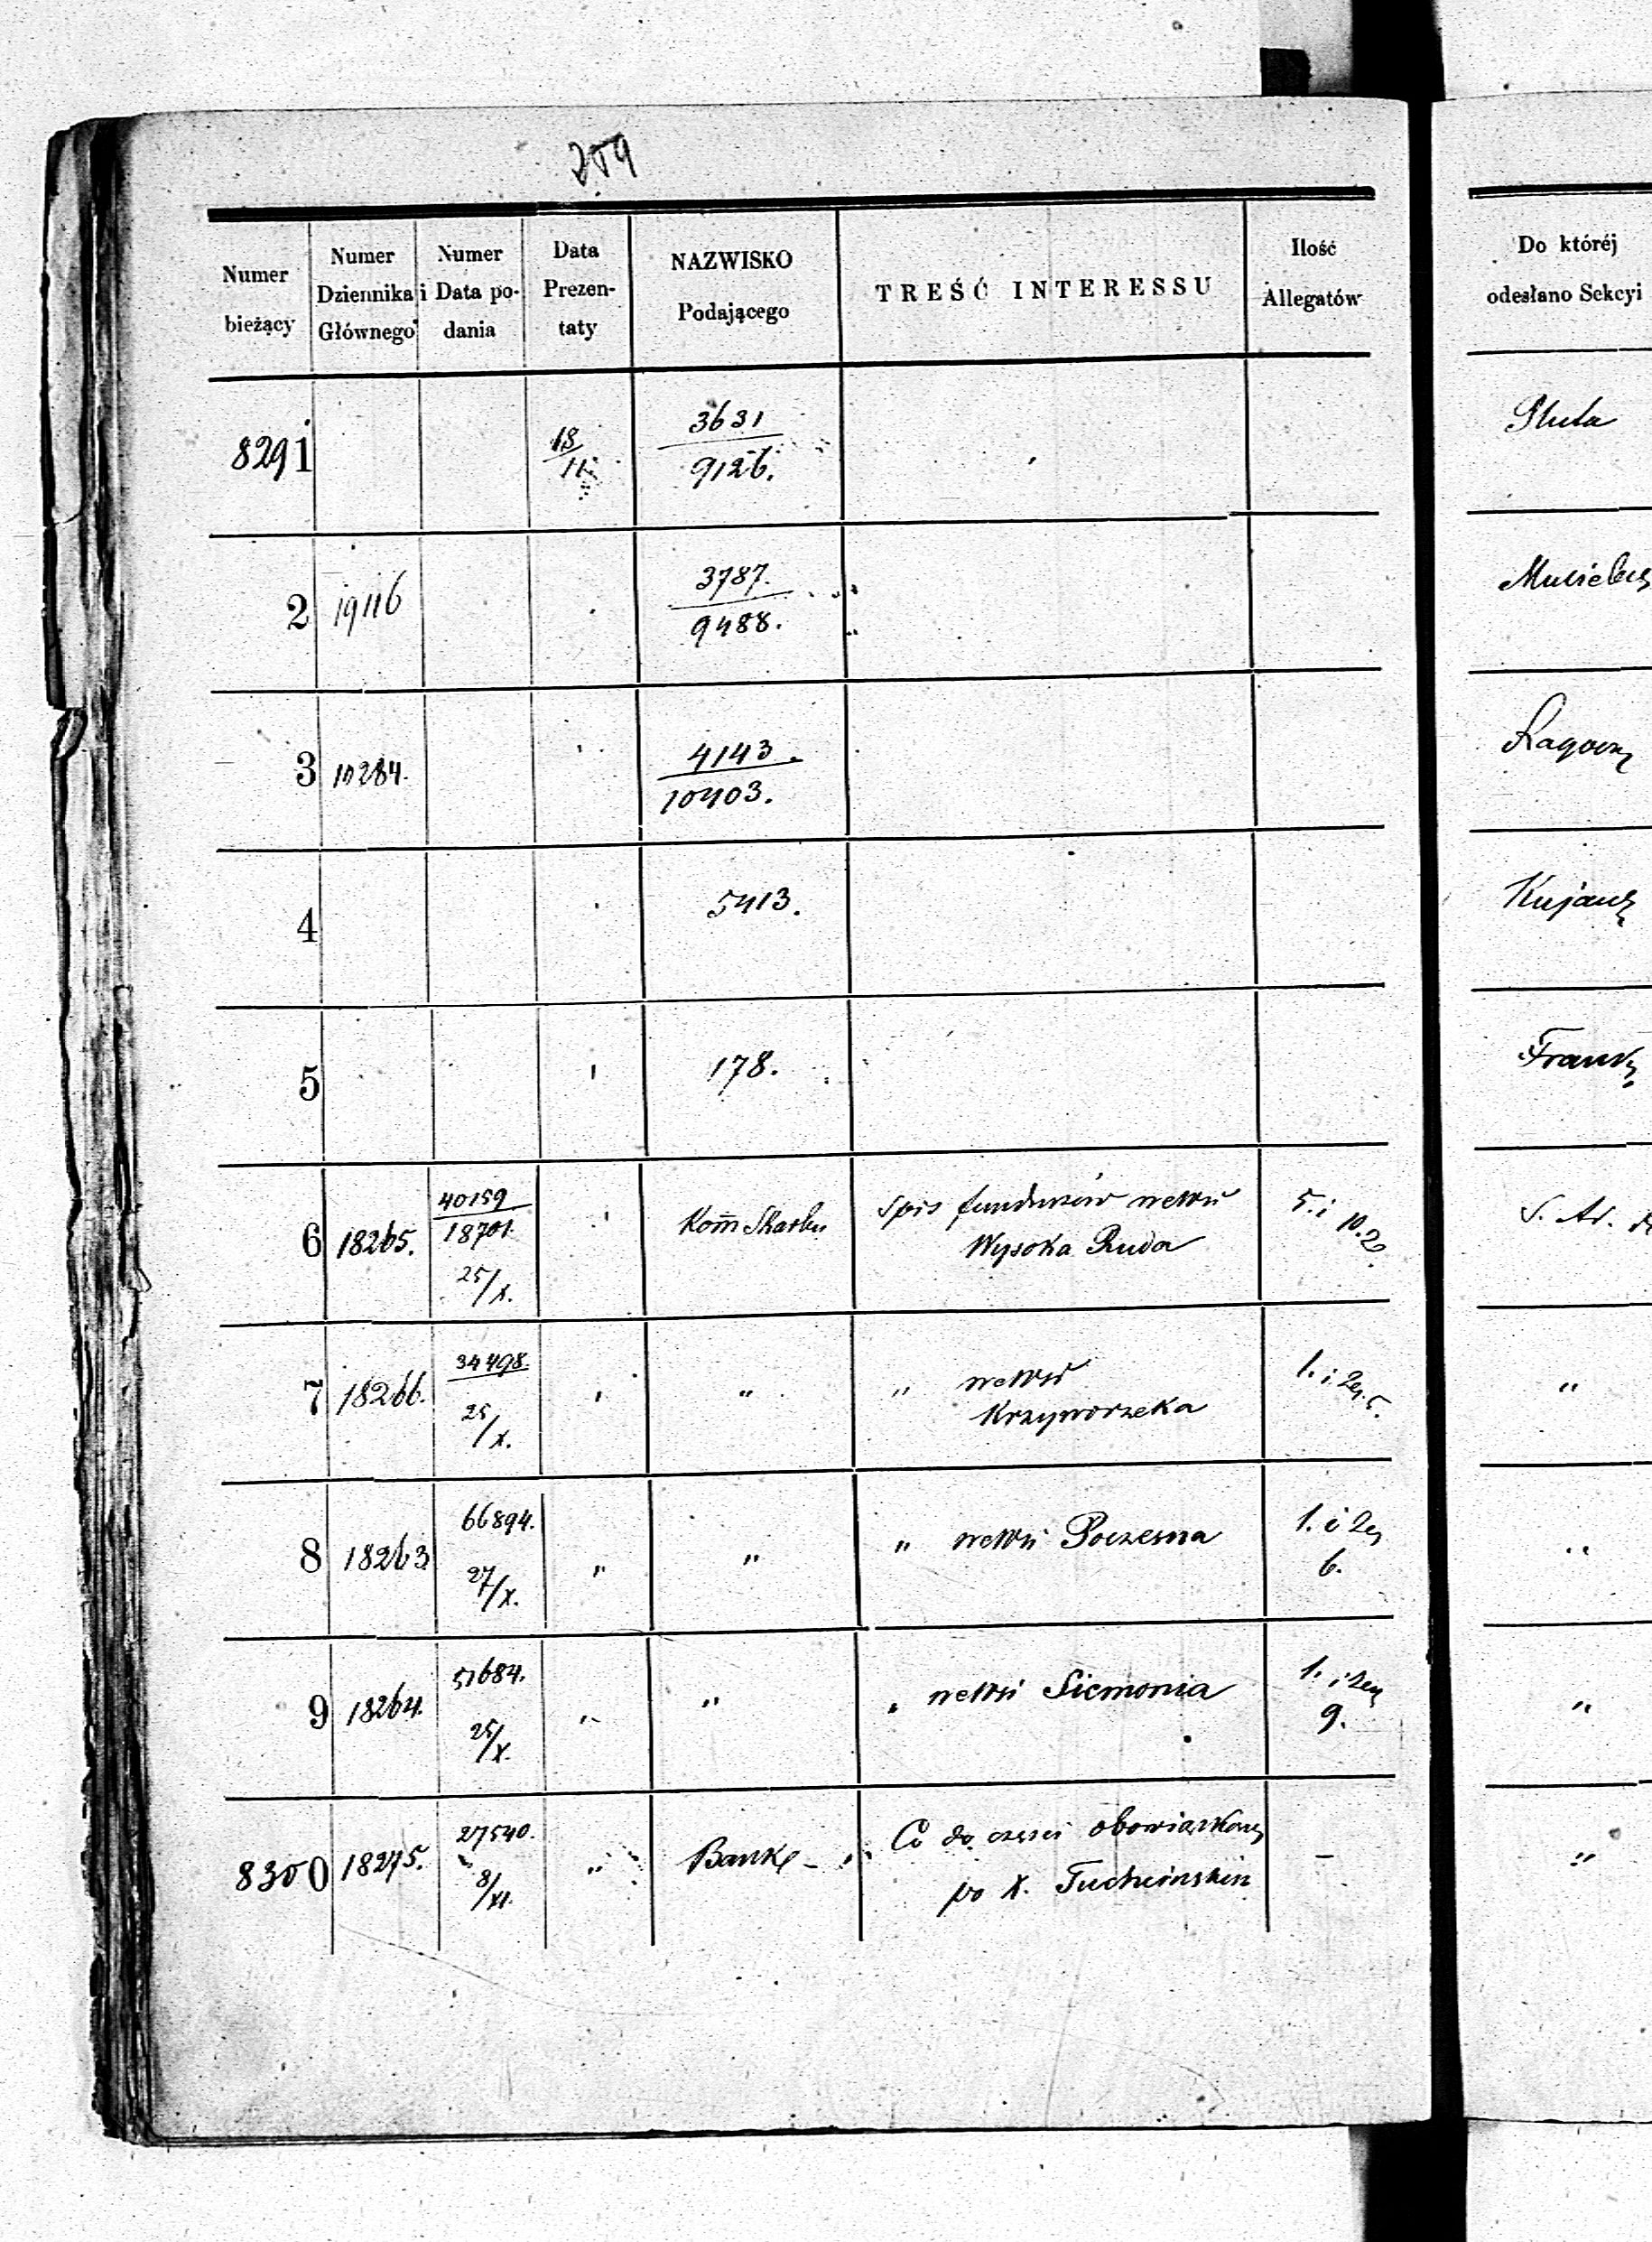 259
Numer bieżący
Numer Dziennika Głównego
Numer i Data podania
Data Prezentaty
NAZWISKO Podającego
TREŚĆ INTERESSU
Ilość Allegatów
Do któréj odesłano Sekcyi
8291 18/11 3631/9126.
2 19116 3787./9488.
3 10284. 4143./10403.
4 5413.
5 178.
6 18265. 40159/18701. 25/X. Kom̄ Skarbu Spis funduszów we wsi
Wysoka Ruda 5. i 10.
7 18266. 34498. 25/X. " " we wsi
Krzyworzeka 1. i
8 18263 66894. 27/X. " " " we wsi Poczesna 1. i
6.
9 18264. 51684. 25/X. " " " we wsi Siemonia 1. i
9. "
8300 18275. 27540. 8/XI. " Bank Co do części
po X. – "